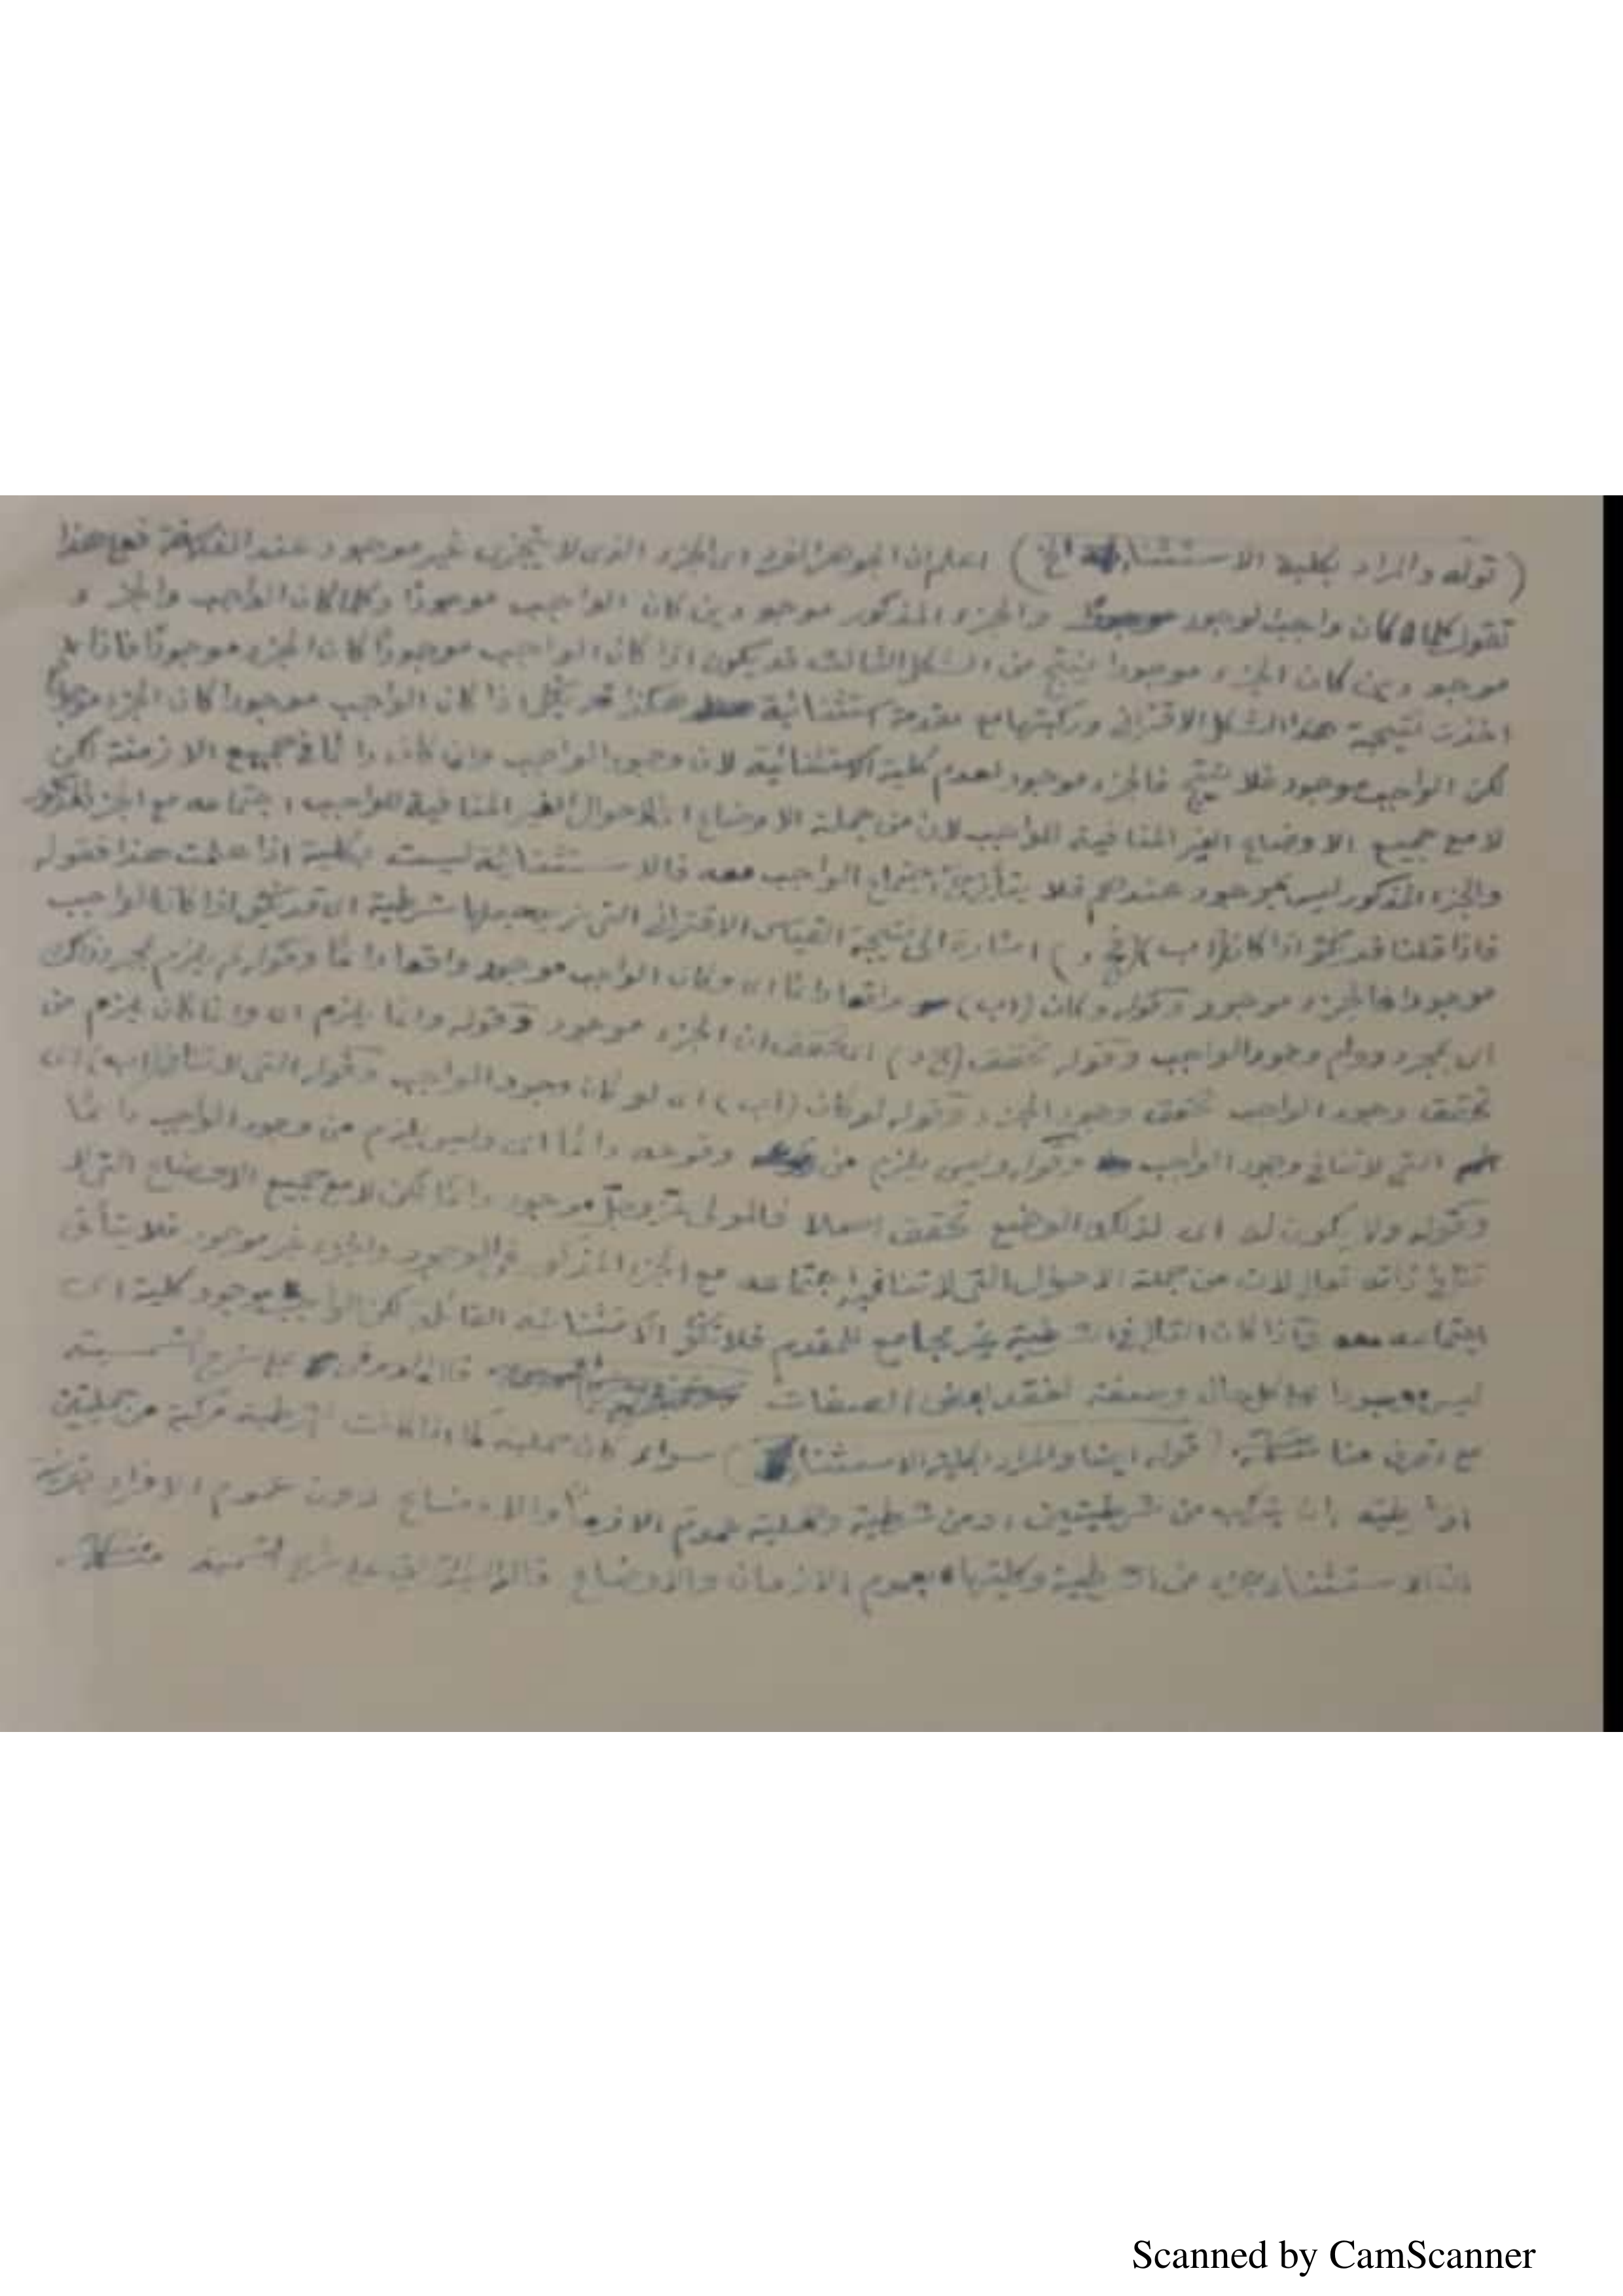 (قوله والمراد بكلية الاستثناء الخ) اعلم ان الجوهر الفرد اى الجزء الذى لا يتجزى غير موجود عند الفلاسفة فعلى هذا
تقول كلما كان واجب الوجود والجزء المذكور موجودين كان الواجب موجودًا وكلما كان الواجب والجزء
موجودين كان الجزء موجودا ينتج من الشكل الثالث قد يكون اذا كان الواجب موجودًا كان الجزء موجودًا فاذا
اخذت نتيجة هذا الشكل الاقترانى وركبتها مع مقدمة استثنائية هكذا قد يكون اذا كان الواجب موجودا كان الجزء موجودًا
لكن الواجب موجود فلا ينتج فالجزء موجود لعدم كلية الاستثنائية لان وجود الواجب وان كان دائما فى جميع الازمنة لكن
لا مع جميع الاوضاع الغير المنافية للواجب لان من جملة الاوضاع الاحوال الغير المنافية للواجب اجتماعه مع الجزء المذكور
والجزء المذكور ليس بموجود عندهم فلا يتأتى اجتماع الواجب معه فالاستثنائية ليست بكلية اذا علمت هذا فقوله
فاذا قلنا قد يكون اذا كان (اب) (فج د) اشارة الى نتيجة القياس الاقترانى التى شرطية اى قد يكون اذا كان الواجب
موجودا فالجزء موجود وقوله وكان (اب) واقعا دائما اى وكان الواجب موجود واقعا دائمًا وقوله لم يلزم بمجرد ذلك
اى بمجرد دوام وجود الواجب وقوله تحقق (ج د) اى تحقق ان الجزء موجود وقوله وانما يلزم اى وانما كان يلزم من
تحقق وجود الواجب تحقق وجود الجزء وقوله لو كان (اب) اى لو كان وجود الواجب وقوله التى لا تنافى (اب) اى
التى لا تنافى وجود الواجب وقوله وليس يلزم من وقوعه دائمًا اى وليس يلزم من وجود الواجب دائمًا
وقوله ولا يكون له اى لذلك الوضع تحقق اصلا فالمولى عز وجل موجود دائمًا لكن لا مع جميع الاوضاع التى لا
تنافى ذاته تعالى لان من جملة الاحوال التى لا تنافيه اجتماعه مع الجزء المذكور فى الوجود والجزء غير موجود فلا يتأتى
اجتماعه فاذا كان التالى فى الشرطية غير مجامع للمقدم فلا تكون الاستثنائية القائلة لكن الواجب موجود كلية اى
ليس موجودا على كل حال وصفة لفقد بعض الصفات قاله على شرح الشمسية
مع (قوله ايضا والمراد بكلية الاستثناء) سواء كان حملية كما اذا كانت الشرطية مركبة من حمليتين
او شرطية بان يتركب من شرطيتين او من شرطية وحملية عموم الازمنة والاوضاع دون عموم الافراد بقرينة
ان الاستثناء جزء من الشرطية وكليتها بعموم الازمان والاوضاع قاله على شرح الشمسية